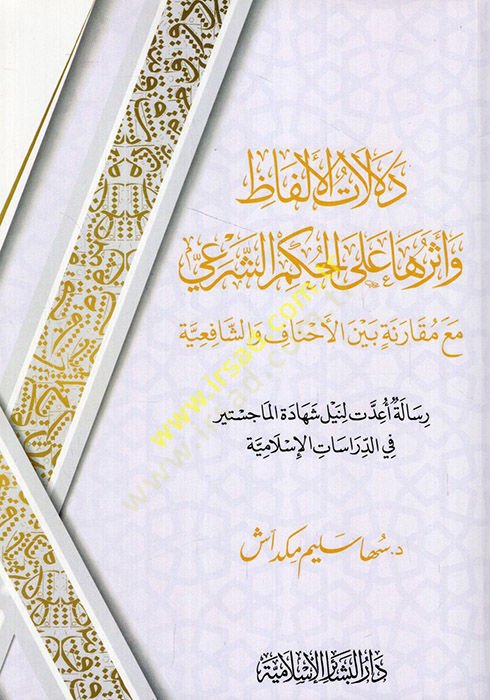 دَلَالَاتُ الأَلْفَاظِ
وَأَثَرُهَا عَلَى الْحُكْمِ الشَّرْعِيِّ
مَعَ مُقَارَنَةٍ بَيْنَ الأَحْنَافِ وَالشَّافِعِيَّةِ
رِسَالَةٌ أُعِدَّت لِنَيْلِ شَهَادَة المَاجستير
فِي الدِّرَاسَاتِ الإِسْلَامِيَّة
د. سُها سليم مكداش
دَارُ البَشَائِر الإِسْلَامِيَّة
www.irsad.com.tr